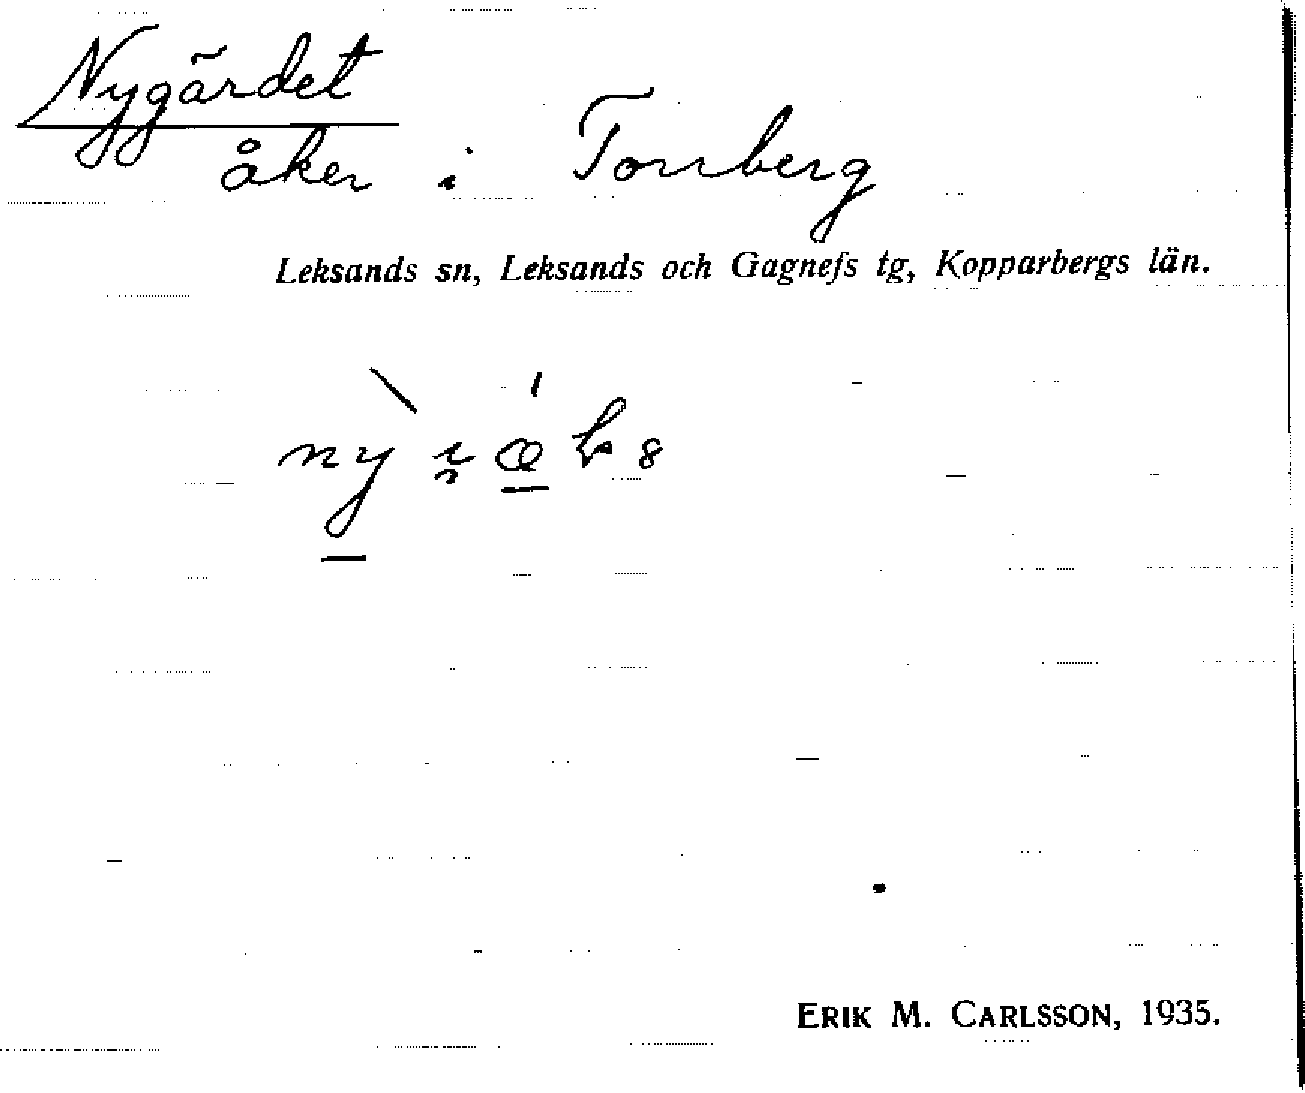 Nygärdet
åker i Torrberg
Leksands sn, Leksands och Gagnefs tg, Kopparbergs län.
ERIK M. CARLSSON, 1935.